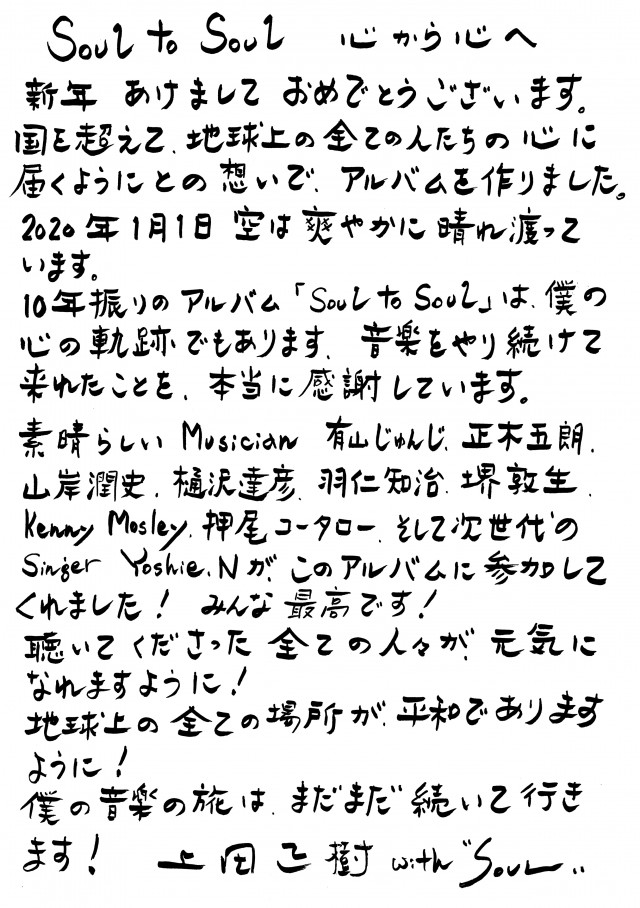 Soul to Soul 心から心へ
新年 あけまして おめでとうございます。
国を超えて、地球上の全ての人たちの心に
届くようにとの想いで、アルバムを作りました。
2020年1月1日 空は爽やかに晴れ渡って
います。
10年振りのアルバム「Soul to Soul」は、僕の
心の軌跡でもあります、音楽をやり続けて
来れたことを、本当に感謝しています。
素晴らしい Musician 有山じゅんじ、正木五朗、
山岸潤史、樋沢達彦、羽仁知治、堺敦生、
Kenny Mosley、押尾コータロー、そして次世代の
Singer Yoshie.Nが、このアルバムに参加して
くれました! みんな最高です!
聴いてくださった全ての人々が、元気に
なれますように!
地球上の全ての場所が、平和であります
ように!
僕の音楽の旅は、まだまだ続いて行き
ます! 上田正樹 with "Soul"